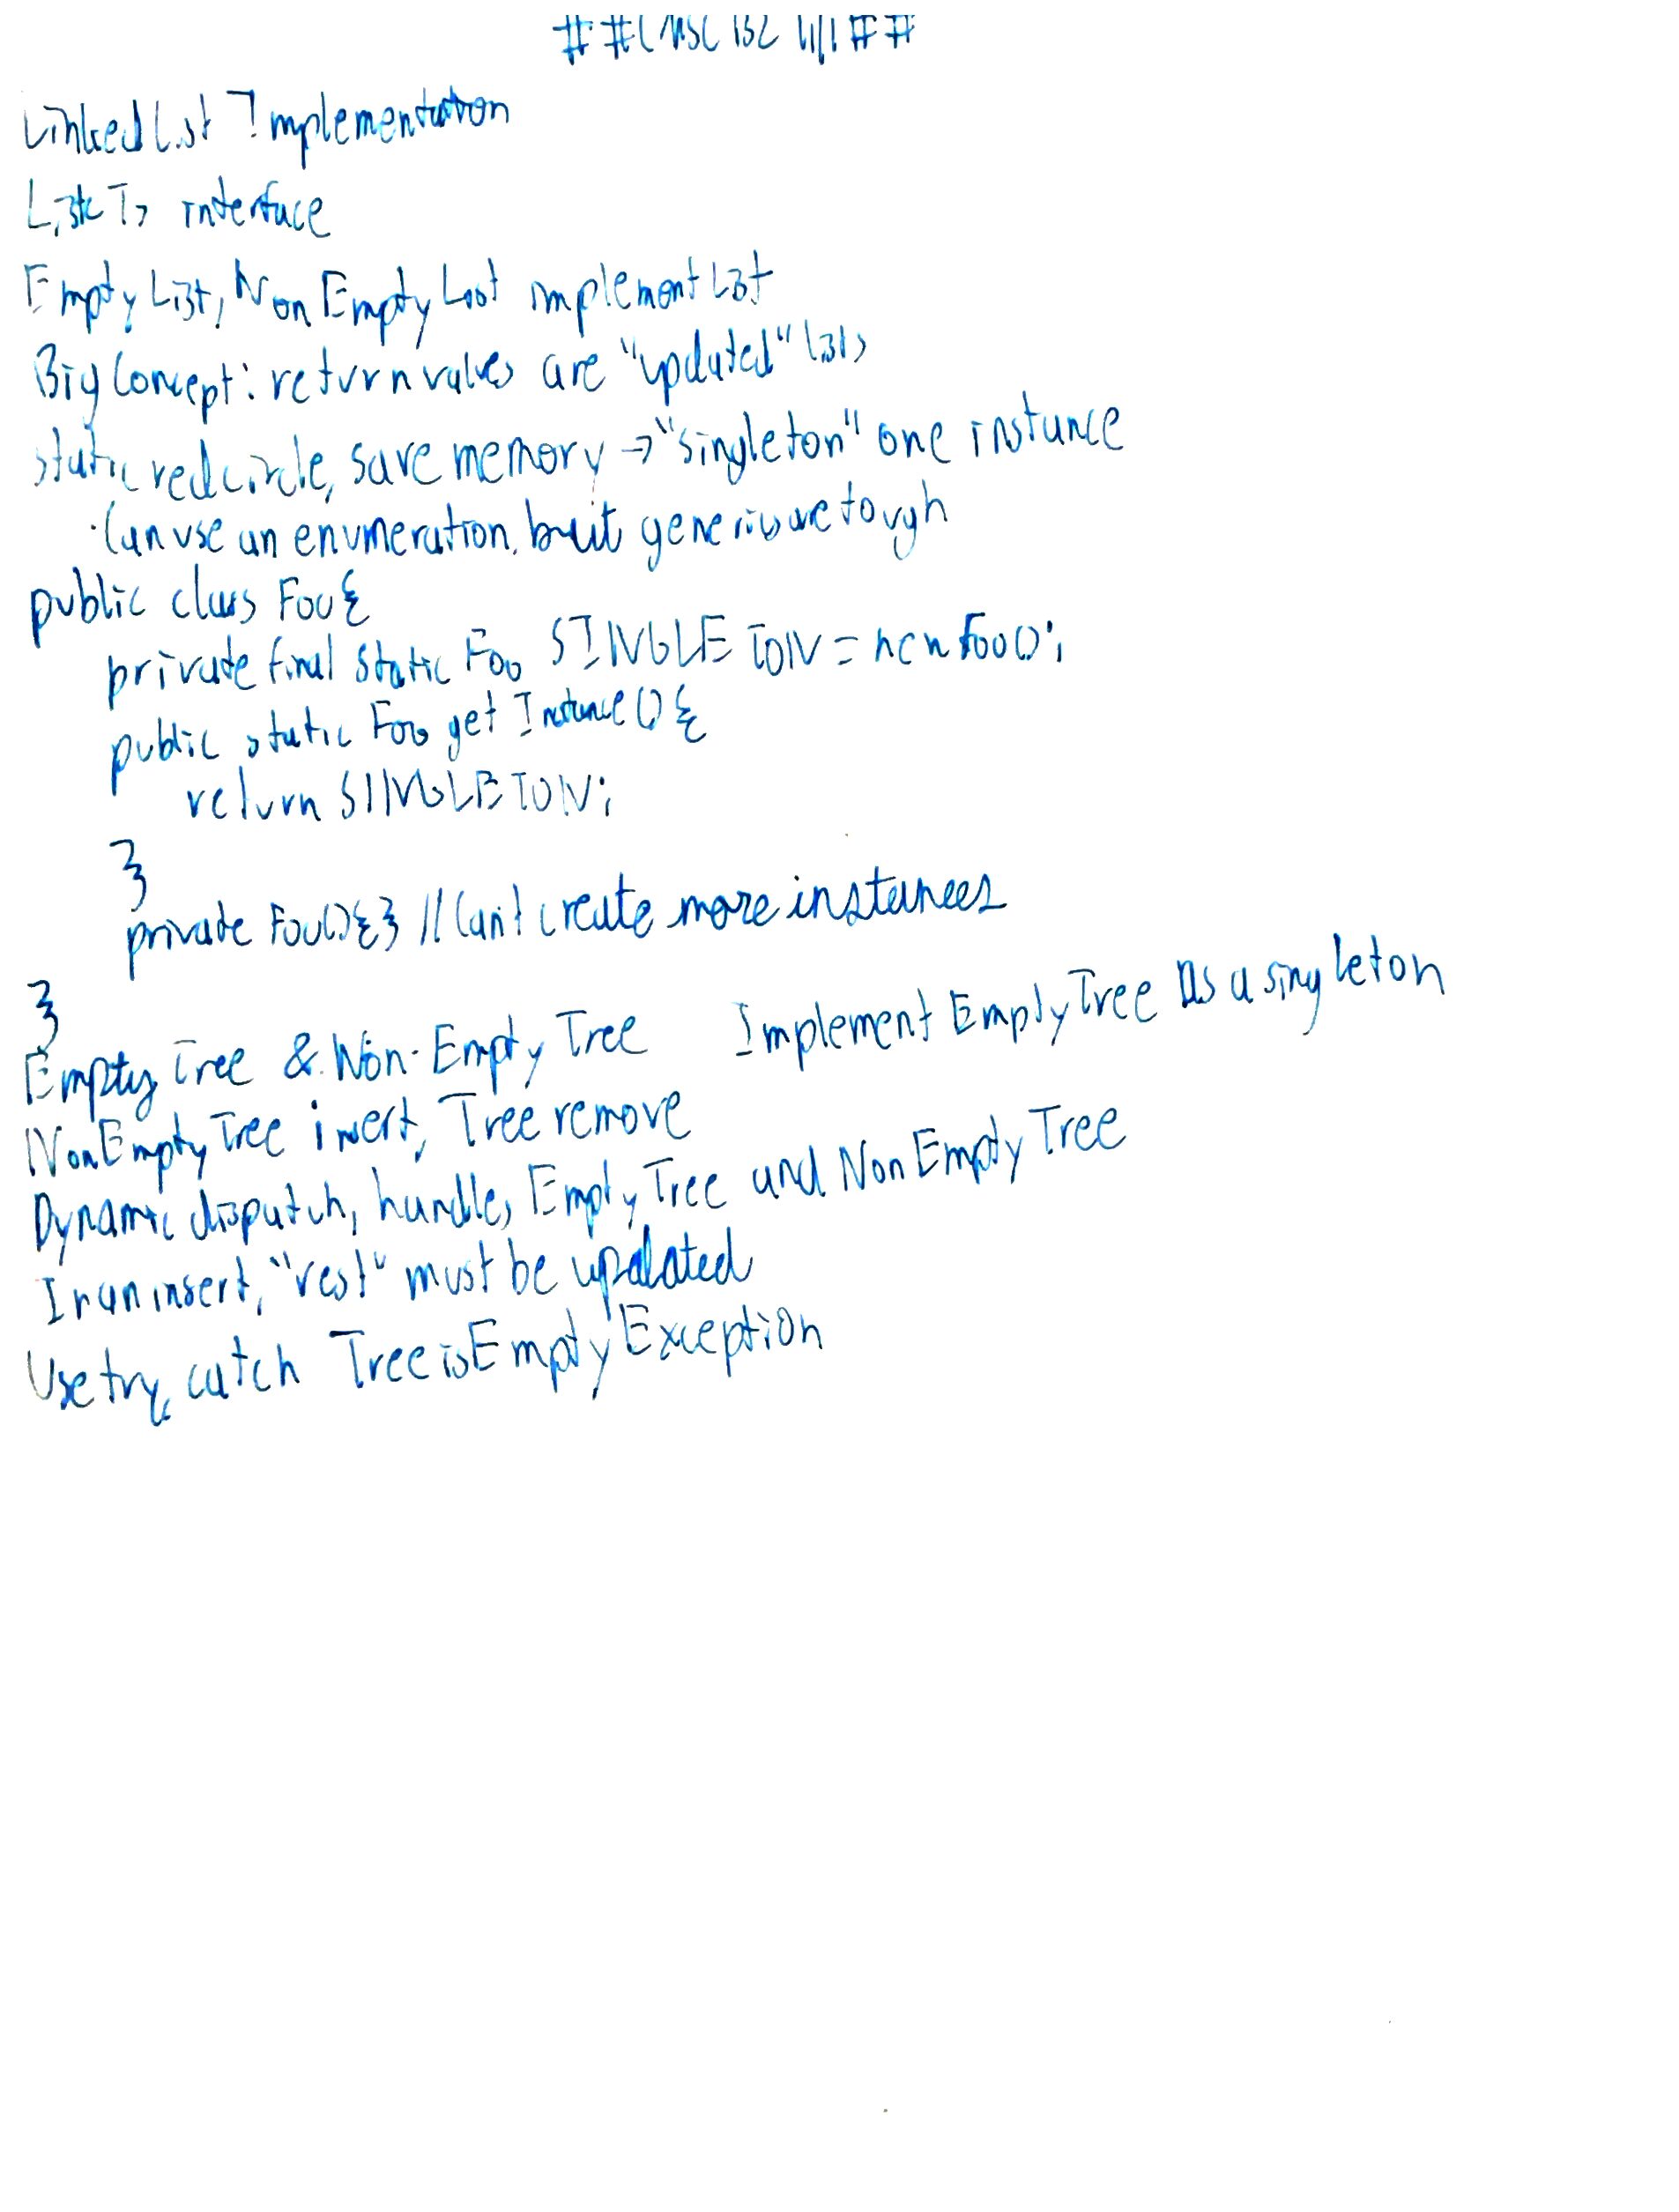 ##CMSC 132 11/1##
Linked List Implementation
List<T> interface
EmptyList, NonEmptyList implement List
Big Concept: return values are "updated" lists
static red circle, save memory → "singleton" one instance
·Can use an enumeration, but generics are tough
public class Foo{
private final static Foo SINGLETON = new Foo();
public static Foo getInstance(){
return SINGLETON;
}
private Foo(){} //Can't create more instances
}
Empty Tree & Non-Empty Tree Implement EmptyTree as a singleton
NonEmptyTree insert, Tree remove
Dynamic dispatch, handles EmptyTree and NonEmptyTree
In an insert, "rest" must be updated
Use try, catch TreeisEmptyException